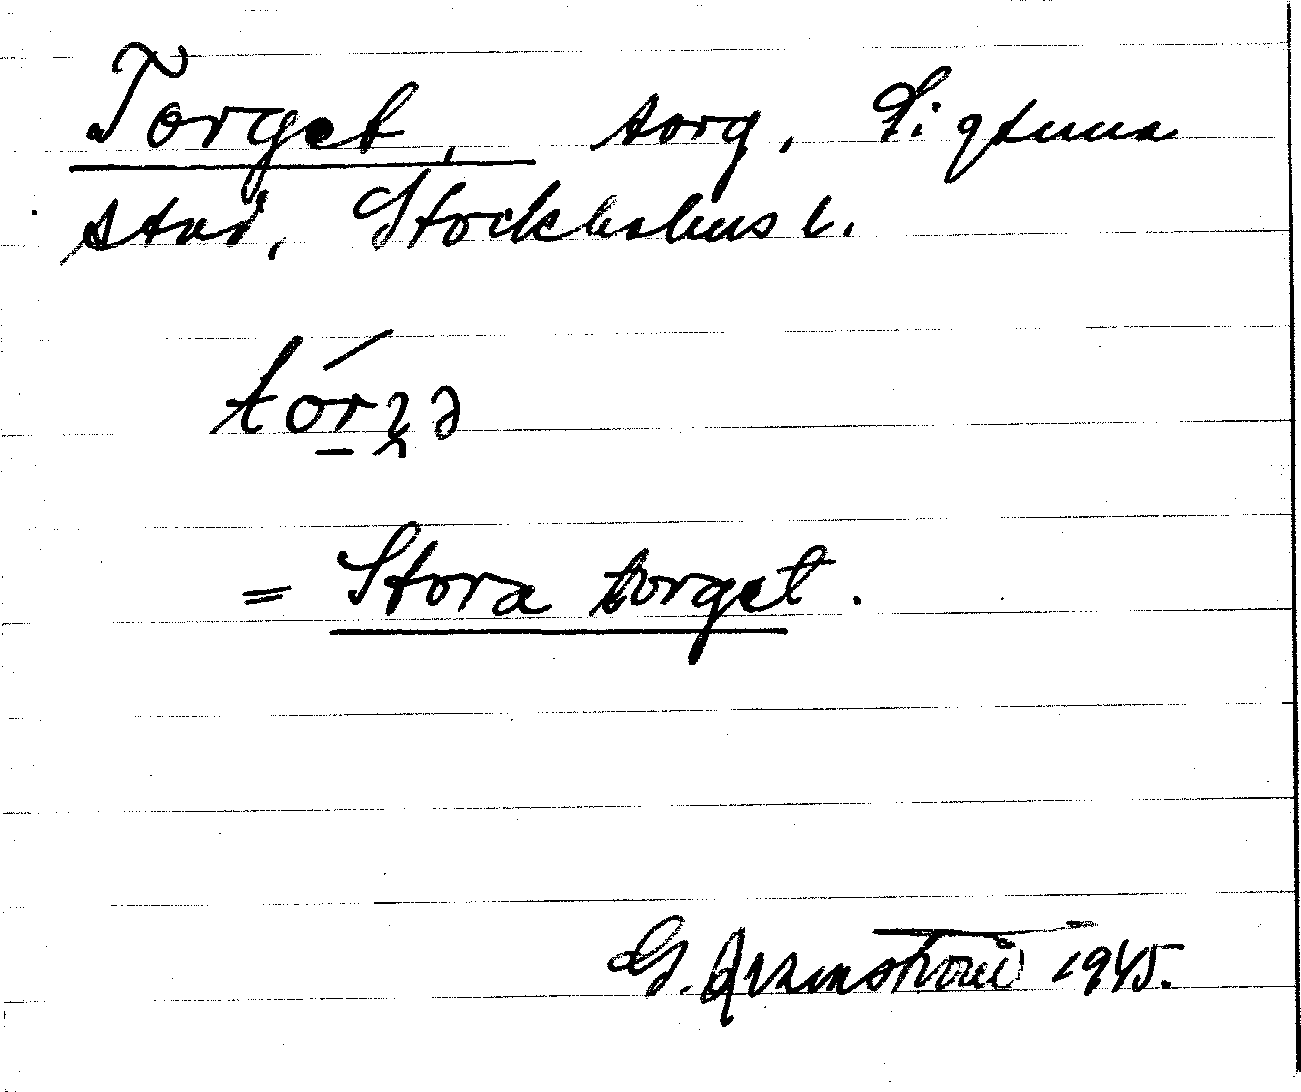 Torget, torg, Sigtuna
stad, Stockholms l.
= Stora torget.
G. 1945.